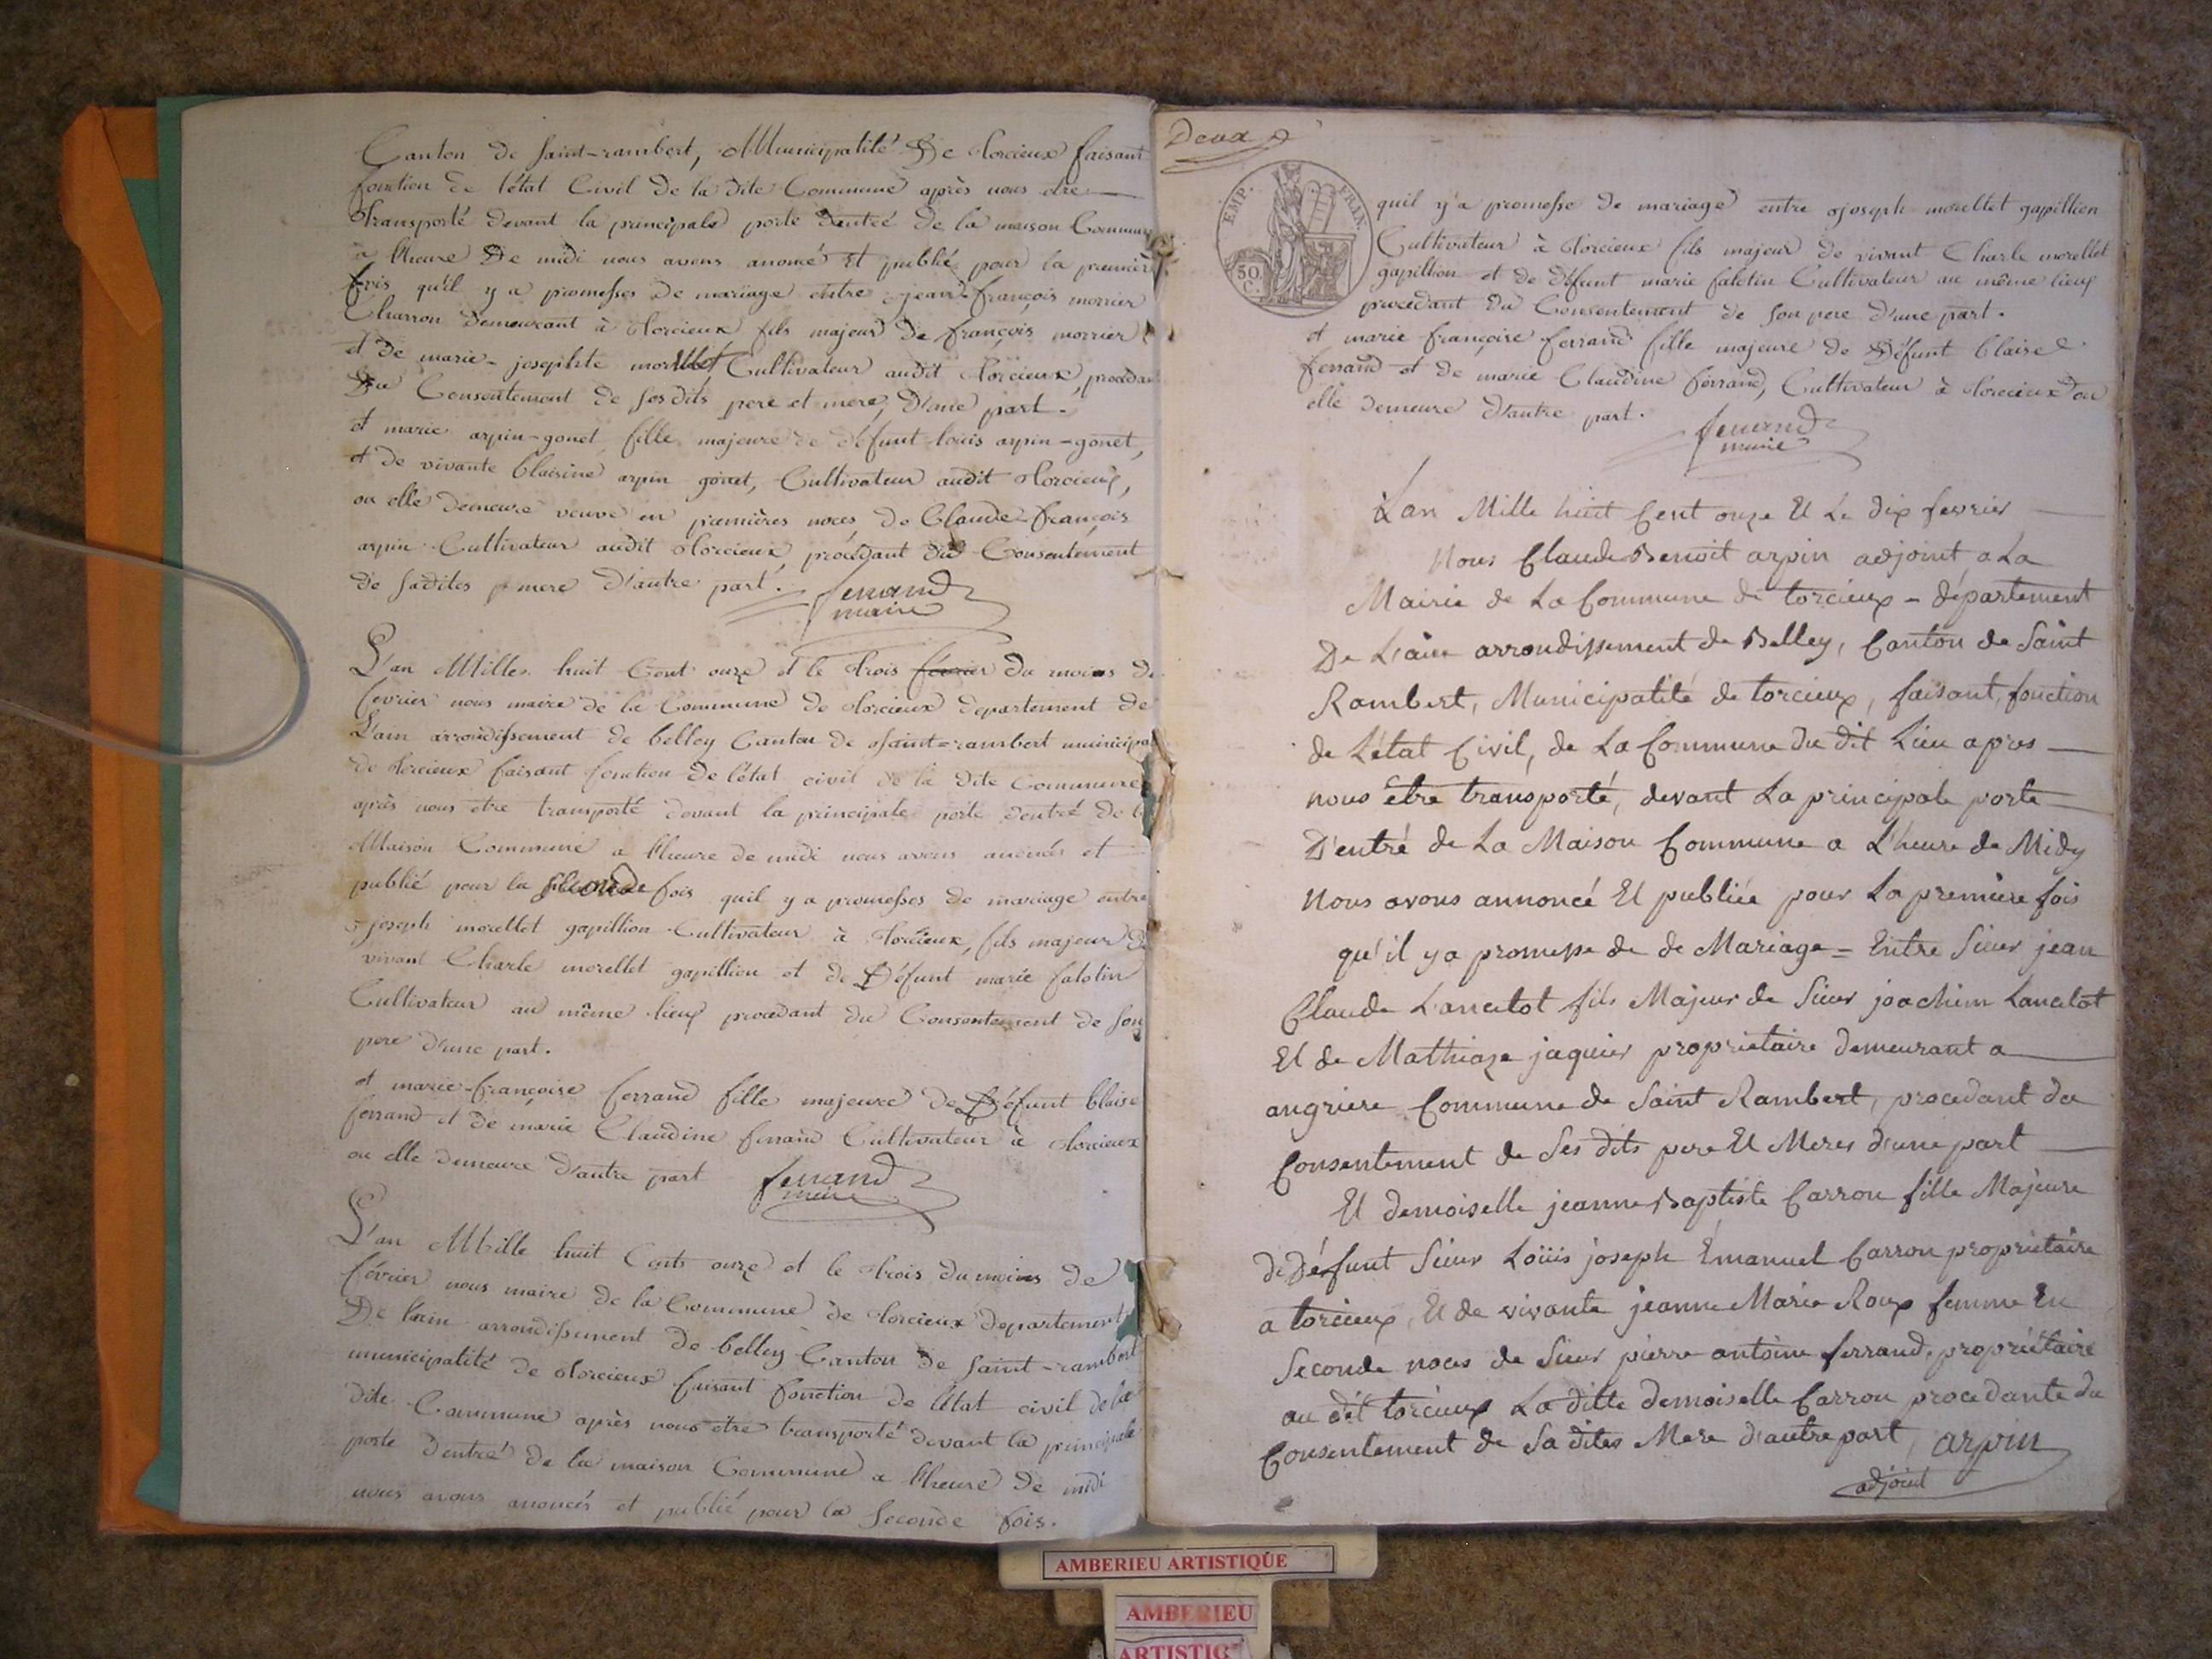 Canton de Saint-rambert, Municipalité De torcieux faisant
fonction de l'état Civil de la dite Commune après nous etre
transporté devant la principale porte d'entré de la maison Commune
a l'heure De midi nous avons anoncé et publié pour la première
fois qu'il y a promesses de mariage entre jean-françois morrier
Charron demeurant à torcieux fils majeur de françois morrier
et de marie-josephte morellet Cultivateur audit torcieux, procedant
Du Consentement de sesdits pere et mere, d'une part.
et marie arpin-gonet fille majeure de défunt louis arpin-gonet,
et de vivante blaisine arpin gonet, Cultivateur audit torcieux,
ou elle demeure veuve en premières noces de Claude-françois
arpin Cultivateur audit torcieux, procédant du Consentement
de sadites mere d'autre part.
ferrand
maire
L'an Milles huit Cent onze et le trois fevrier du moins de
fevrier nous maire de la Commune de torcieux departement de
L'ain arrondissement de belley Canton de saint-rambert municipal
de torcieux faisant fonction de l'état civil de la dite Commune
après nous etre transporté devant la principale porte d'entré de la
Maison Commune a l'heure de midi nous avons anoncés et
publié pour la seconde fois quil y a promesses de mariage entre
joseph morellet gapillion Cultivateur à torcieux, fils majeur de
vivant Charle morellet gapillion et de Défunt marie falotin
Cultivateur au même lieux procedant du Consentement de son
pere d'une part.
et marie-françoise ferrand fille majeure de Défunt blaise
ferrand et de marie Claudine ferrand Cultivateur à torcieux
ou elle demeure d'autre part
ferrand
maire
L'an Mille huit Cents onze et le trois du moins de
février nous maire de la Commune de torcieux departement
De l'ain arrondissement de belley Canton de saint-rambert
municipalité de torcieux faisant fonction de l'état civil de la
dite Commune après nous etre transporté devant la principale
porte d'entré de la maison Commune a l'heure de midi
nous avons anoncés et publié pour la seconde fois.
Deux
EMP. FRAN.
50
C.
quil y'a promesse de mariage entre joseph morellet gapillion
Cultivateur à torcieux fils majeur de vivant Charle morellet
gapillion et de défunt marie falotin Cultivateur au même lieux
procedant du Consentement de son pere d'une part.
et marie françoise ferrand fille majeure de Défunt blaise
ferrand et de marie Claudine ferrand, Cultivateur à torcieux ou
elle demeure d'autre part.
ferrand
maire
Lan Mille huit Cent onze Et Le dix fevrier
Nous Claude Benoit arpin adjoint a La
Mairie de La Commune de torcieux - département
De L'ain arrondissement de Belley, Canton de Saint
Rambert, Municipalité de torcieux, faisant, fonction
de L'état Civil, de La Commune du dit Lieu apres
nous être transporté, devant La principale porte
D'entré de La Maison Commune a L'heure de Midy
Nous avons annoncé Et publiée pour La première fois
qu'il y a promesse de de Mariage = Entre Sieur jean
Claude Lancelot fils Majeur de Sieur joachim Lancelot
Et de Mathiaze jaquier proprietaire demeurant a
angriere Commune de Saint Rambert, procedant du
Consentement de Ses dits pere Et Meres d'une part
Et demoiselle jeanne Baptiste Carron fille Majeure
de Défunt Sieur Loüis joseph Emanuel Carron proprietaire
a torcieux, Et de vivante jeanne Marie Roux femme En
Seconde noces de Sieur pierre antoine ferrand, propriétaire
au dit torcieux La ditte demoiselle Carron procedante du
Consentement de Sa dites Mere d'autre part, arpin
adjoint
AMBERIEU ARTISTIQUE
AMBERIEU